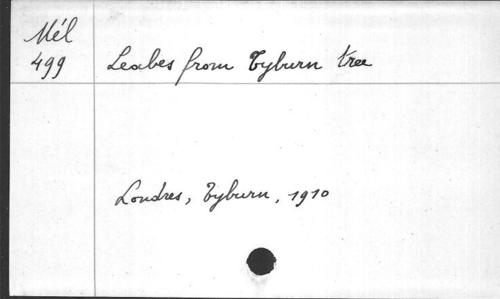 Mél
499
Leabes from Tyburn tree
Londres, Tyburn, 1910